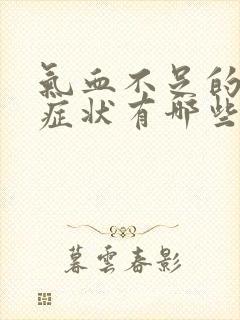 氣血不足的
症状有哪些
暮雲春影